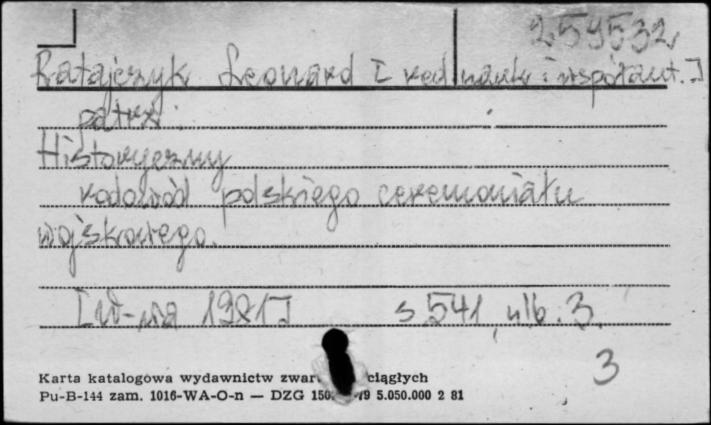 259532
Ratajczyk Leonard [red. nauk. i współaut.]
patrz:
Historyczny
rodowód polskiego ceremoniału
wojskowego.
[W-wa 1981] s. 541, nlb. 3.
3
Karta katalogowa wydawnictw zwar ciągłych
Pu-B-144 zam. 1016-WA-O-n — DZG 5.050.000 2 81